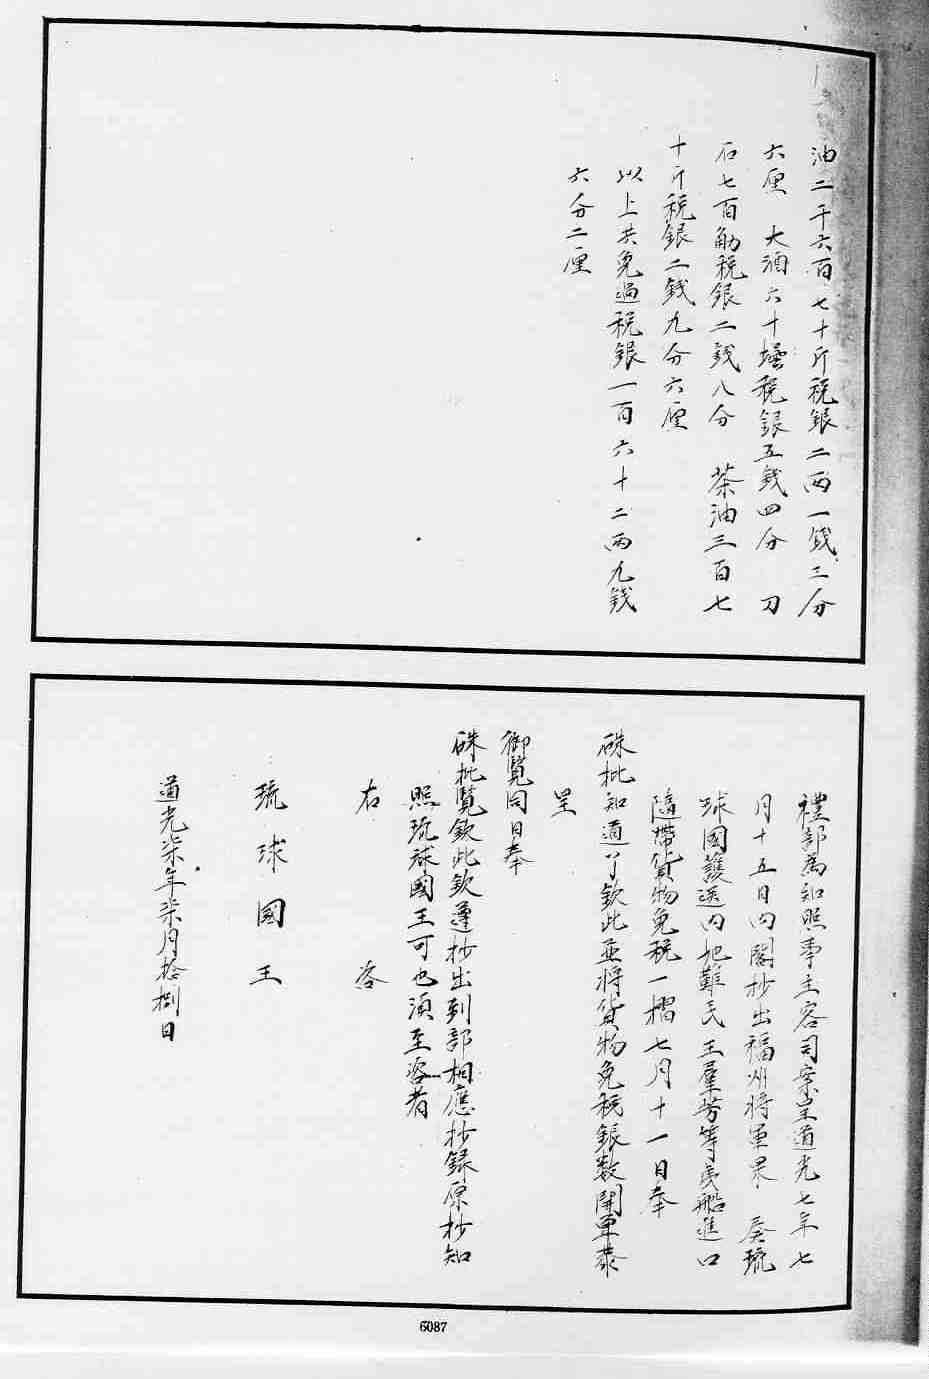 油二千六百七十斤税銀二兩一錢三分
六厘　大酒六十壜税銀五錢四分　刀
石七百觔税銀二錢八分　茶油三百七
十斤税銀二錢九分六厘
以上共免過税銀一百六十二兩九錢
六分二厘
禮部為知照事主客司案呈道光七年七
月十五日内閣抄出福州將軍果　奏琉
球國護送内地難民王羣芳等夷船進口
隨帶貨物免税一摺七月十一日奉
硃批知道了欽此並將貨物免税銀數開單恭
呈
御覧同日奉
硃批覧欽此欽遵抄出到部相應抄録原抄知
照琉球國王可也須至咨者
右　咨
琉球國王
道光柒年柒月拾捌日
6087